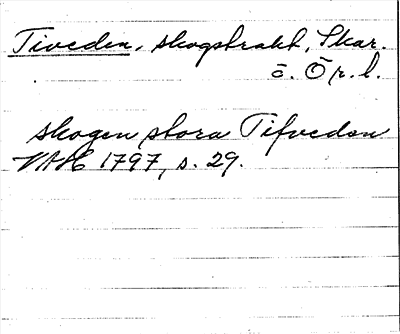 Tiveden, skogstrakt, Skar.
o. Ör. l.
skogen stora Tifveden
VAH 1797, s. 29.